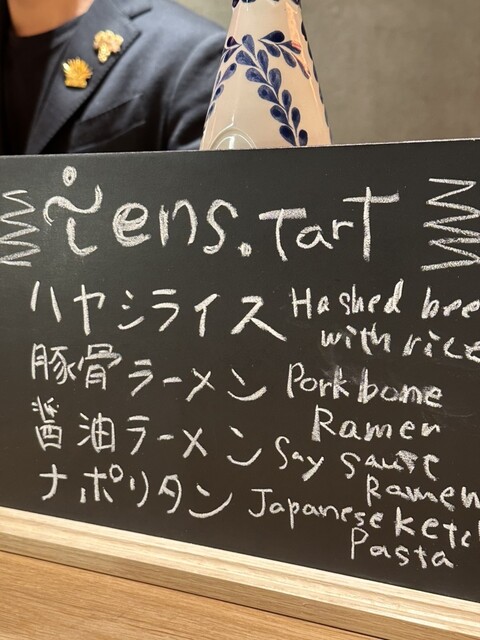 iens.Tart
ハヤシライス Hashed bee
with rice
豚骨ラーメン Pork bone
Ramen
醤油ラーメン Say sause
Ramen
ナポリタン Japanese ketc
Pasta